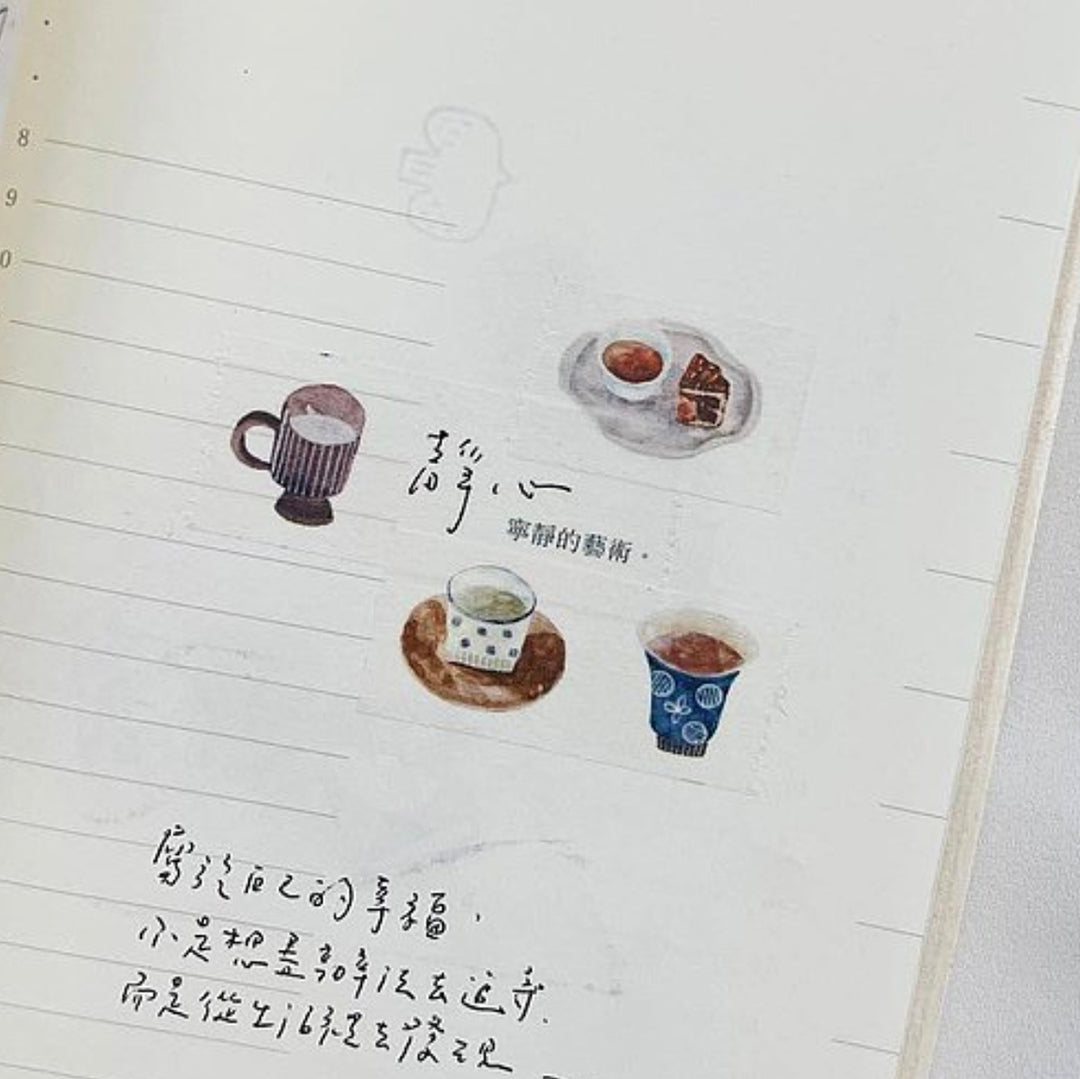 8
9
0
靜心
寧靜的藝術。
屬於自己的幸福,
不是想盡辦法去追尋.
而是從生活裡去發現